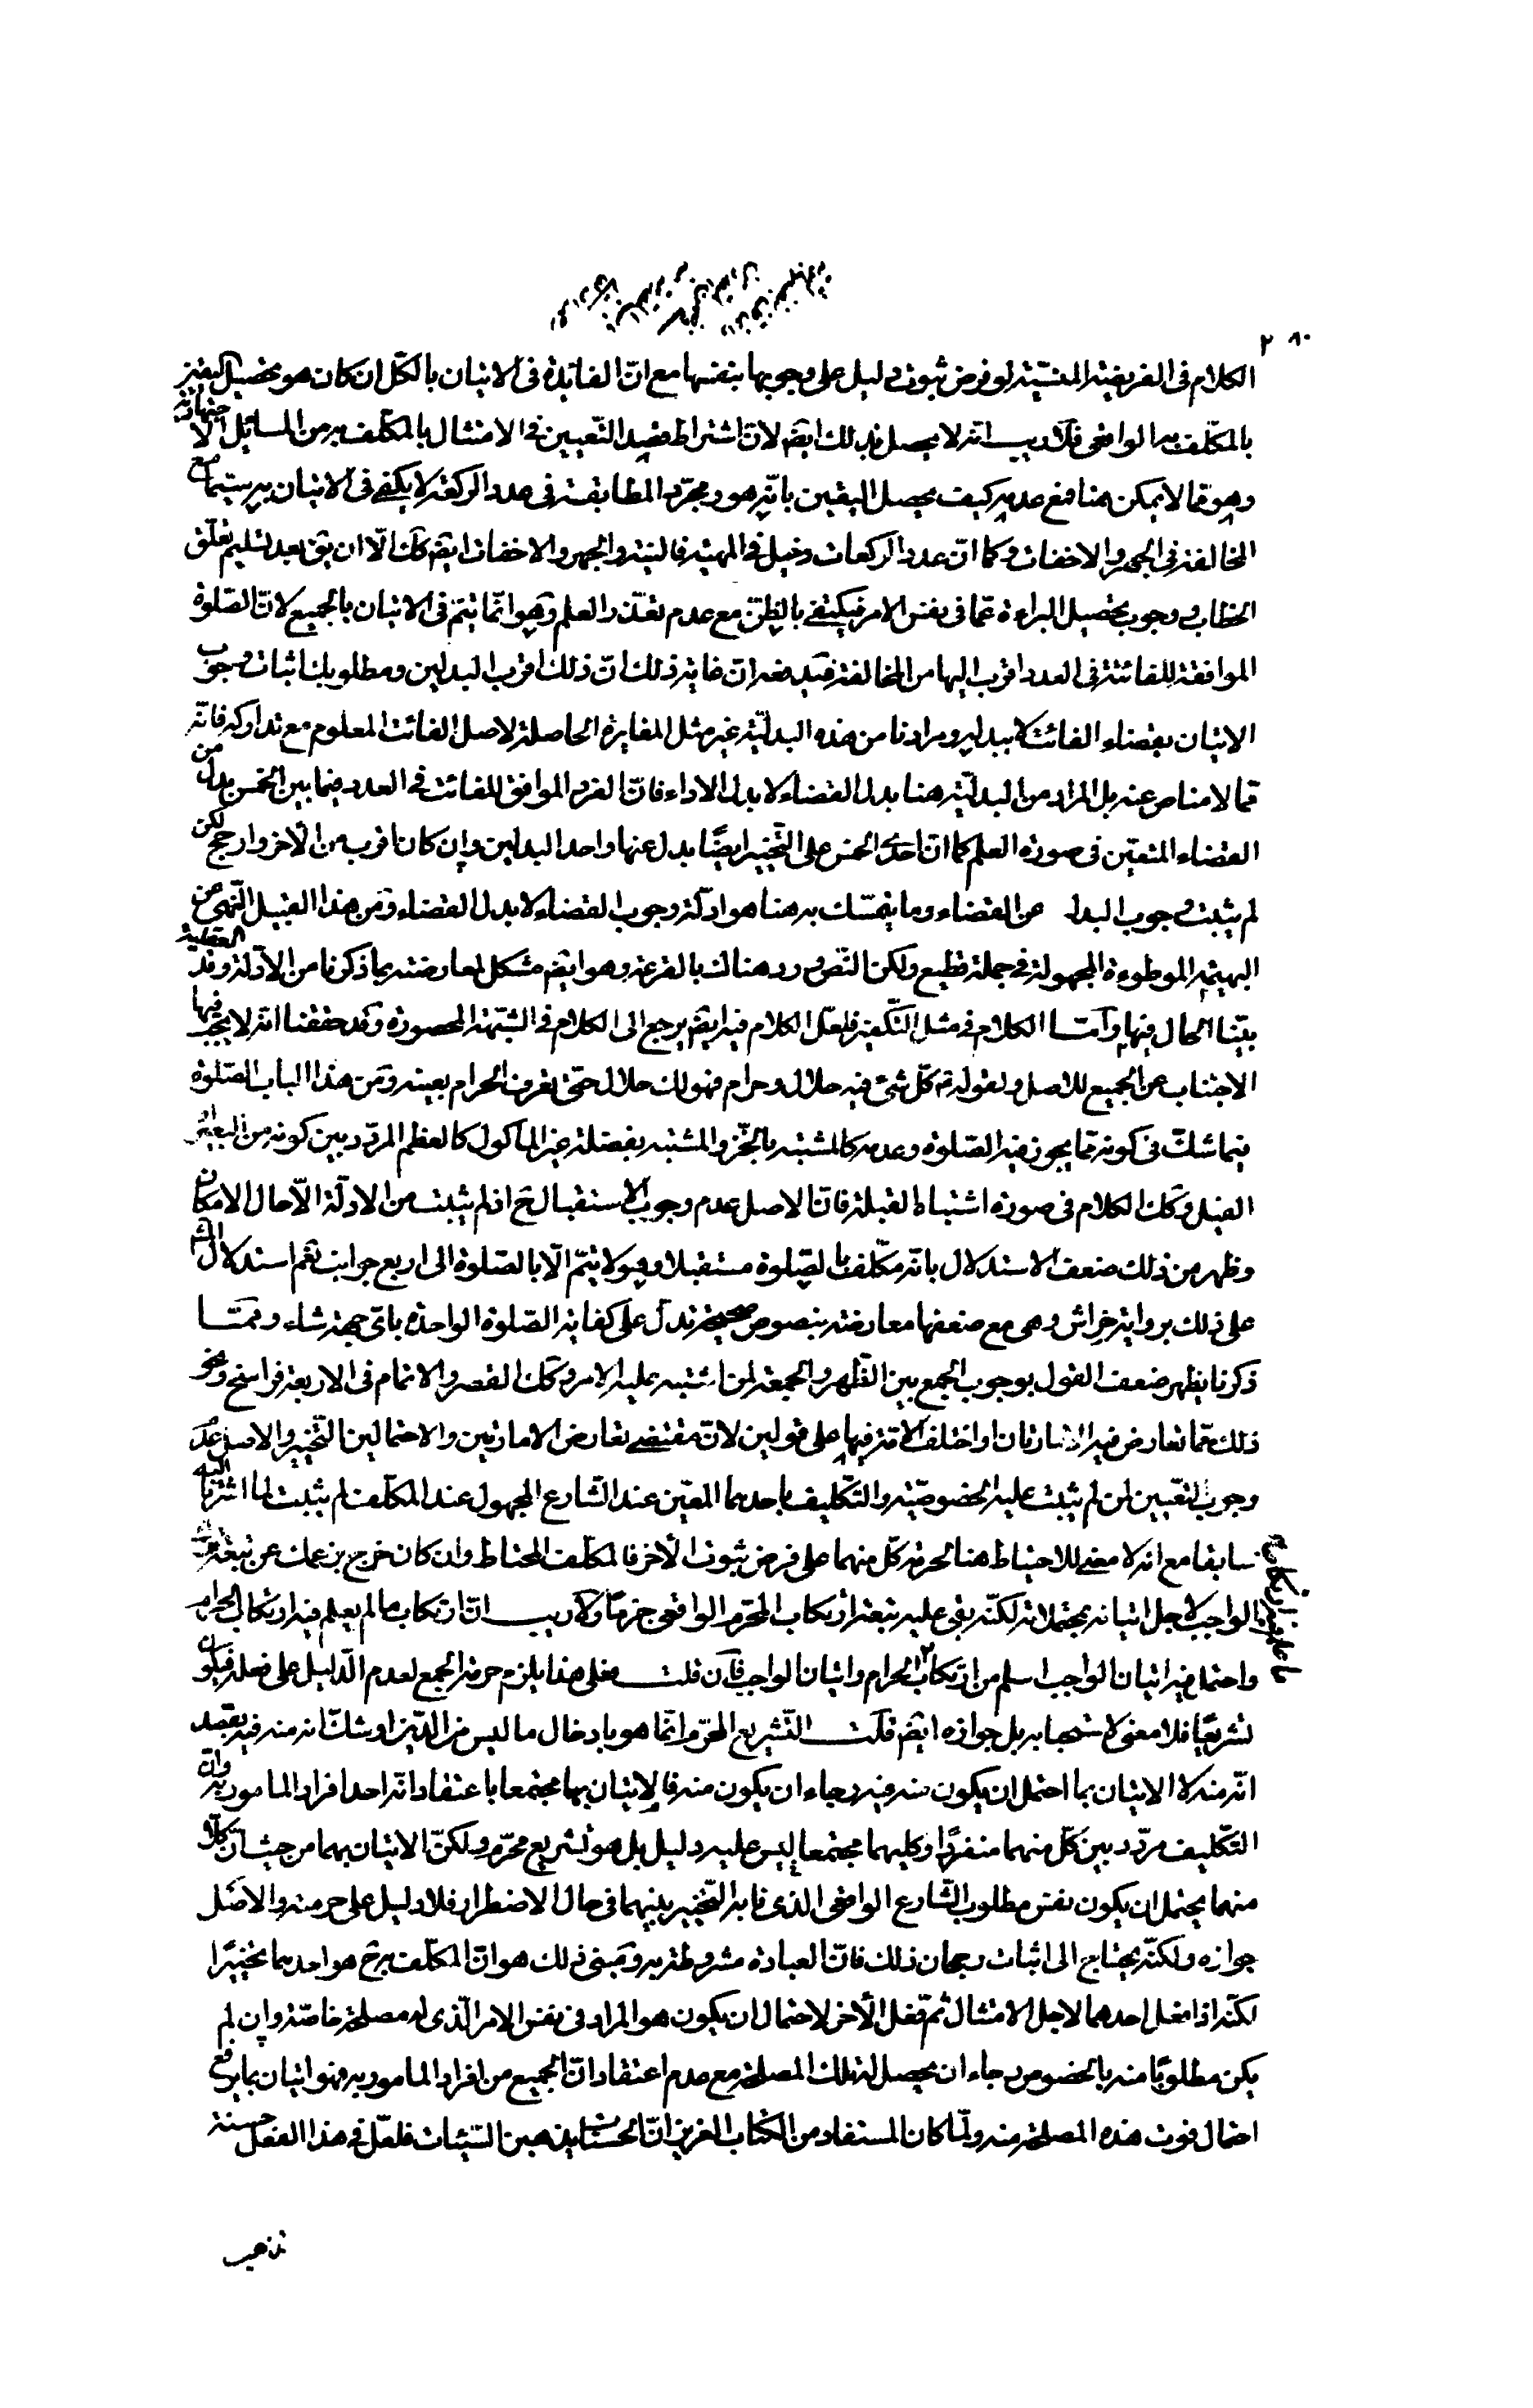 ٢٨٠
الكلام فى الفريضة المنسيّة لو فرض ثبوت دليل على وجوبها بنفسها مع انّ الفائدة فى الاتيان بالكلّ ان كان هو تحصيل اليقين
بالمكلّف به الواقعى فلا ريب انّه لا يحصل بذلك ايضم لانّ اشتراط قصد التّعيين فى الامتثال بالمكلّف به من المسائل الاجتهاديّة
وهو ممّا لا يمكن هنا فمع عدمه كيف يحصل اليقين بانّه هو ومجرّد المطابقة فى عدد الركعة لا يكفى فى الاتيان به سيّما مع
المخالفة فى الجهر والاخفات وكما انّ عدد الركعات دخيل فى المهيّة فالنيّة والجهر والاخفات ايضم كك الّا ان يق بعد تسليم تعلّق
الخطاب ووجوب تحصيل البراءة عمّا فى نفس الامر فيكتفى بالظنّ مع عدم تعذر العلم وهو انّما يتمّ فى الاتيان بالجميع لانّ الصّلوة
الموافقة للفائتة فى العدد اقرب اليها من المخالفة فيه ففيه انّ غاية ذلك انّ ذلك اقرب البدلين ومطلوبك اثبات وجوب
الاتيان بقضاء الفائتة لا ببدله ومرادنا من هذه البدليّة غير مثل المغايرة الحاصلة لاصل الفائت المعلوم مع تداركه فانّه
ممّا لا مناص عنه بل المراد من البدليّة هنا بدل القضاء لا بدل الاداء فانّ الفرد الموافق للفائت فى العدد فيما بين الخمس بدل من
القضاء المتعيّن فى صورة العلم كما انّ احدى الخمس على التّخيير ايضًا بدل عنها واحد البدلين وان كان اقرب من الآخر وارجح لكن
لم يثبت وجوب البدل عن القضاء وما يتمسّك به هنا هو ادلّة وجوب القضاء لا بدل القضاء ومن هذا القبيل النّهى عن
البهيمة الموطوءة المجهولة فى جملة قطيع ولكن النّص ورد هناك بالقرعة وهو ايضم مشكل لمعارضته بما ذكرنا من الادلّة العقلية وقد
بيّنا الحال فيها وامّا الكلام فى مثل التّكفين فلعلّ الكلام فيه ايضم يرجع الى الكلام فى الشّبهة المحصورة وقد حققنا انّه لا يجب فيها
الاجتناب عن الجميع للاصل ولقوله تم كلّ شئ فيه حلال وحرام فهو لك حلال حتّى تعرف الحرام بعينه ومن هذا الباب الصّلوة
فيما شكّ فى كونه ممّا يجوز فيه الصّلوة وعدمه كالمشتبه بالخزّ والمشتبه بفضلة غير المأكول كالعظم المردّد بين كونه من البعير او
الفيل وكك الكلام فى صورة اشتباه القبلة فانّ الاصل عدم وجوب الاستقبال ح اذ لم يثبت من الادلّة الّا حال الامكان
وظهر من ذلك ضعف الاستدلال بانّه مكلّف بالصّلوة مستقبلا وهو لا يتمّ الّا بالصّلوة الى اربع جوانب نعم استدلال
على ذلك برواية خراش وهى مع ضعفها معارضة بنصوص صحيحة تدلّ على كفاية الصّلوة الواحدة باىّ جهة شاء وممّا
ذكرنا يظهر ضعف القول بوجوب الجمع بين الظّهر والجمعة لمن اشتبه عليه الامر وكك القصر والاتمام فى الاربعة فراسخ ونحو
ذلك ممّا تعارض فيه الامارتان واختلف الامّة فيها على قولين لانّ مقتضى تعارض الامارتين والاحتمالين التّخيير والاصل عدم
وجوب التّعيين لمن لم يثبت عليه الخصوصيّة والتّكليف باحدهما المعيّن عند الشّارع المجهول عند المكلّف لم يثبت لما اشرنا اليه
سابقا مع انّه لا معنى للاحتياط هنا لحرمة كلّ منهما على فرض ثبوت الآخر فالمكلّف المحتاط وان كان خرج بزعمك عن تبعة
الواجب لاجل اتيانه بمحتملاته لكنّه بقى عليه تبعة ارتكاب المحرّم الواقعى جزمًا ولا ريب انّ ارتكاب ما لم يعلم فيه ارتكاب الحرام
واحتمل فيه اتيان الواجب اسلم من ارتكاب الحرام واتيان الواجب فان قلت فعلى هذا يلزم حرمة الجمع لعدم الدّليل على فعله فيكون
تشريعًا فلا معنى لاستحبابه بل جوازه ايضم قلت التّشريع المحرّم انّما هو بادخال ما ليس من الدّين او شكّ انه منه فيه بقصد
انّه منه لا الاتيان بما احتمل ان يكون منه فيه رجاء ان يكون منه فالاتيان بهما مجتمعا باعتقاد انّه احد افراد المامور به وانّ
التّكليف مردّد بين كلّ منهما منفردًا وكليهما مجتمعا ليس عليه دليل بل هو تشريع محرّم ولكنّ الاتيان بهما من حيث انّ كلّا
منهما يحتمل ان يكون نفس مطلوب الشّارع الواقعى الذى نابه التّخيير بينهما فى حال الاضطرار فلا دليل على حرمته والاصل
جوازه ولكنّه يحتاج الى اثبات رجحان ذلك فانّ العبادة مشروطة به ومبنى ذلك هو انّ المكلّف به ح هو احدهما تخييرًا
لكنّه اذا فعل احدهما لاجل الامتثال ثمّ فعل الآخر لاحتمال ان يكون هو المراد فى نفس الامر الّذى له مصلحة خاصّة وان لم
يكن مطلوبًا منه بالخصوص رجاء ان يحصل له تلك المصلحة مع عدم اعتقاد انّ الجميع من افراد المامور به فهو اتيان بما يرفع
احتمال فوت هذه المصلحة منه ولمّا كان المستفاد من الكتاب العزيز انّ الحسنات يذهبن السّيئات فلعلّ فى هذا الفعل حسنة
تذهب